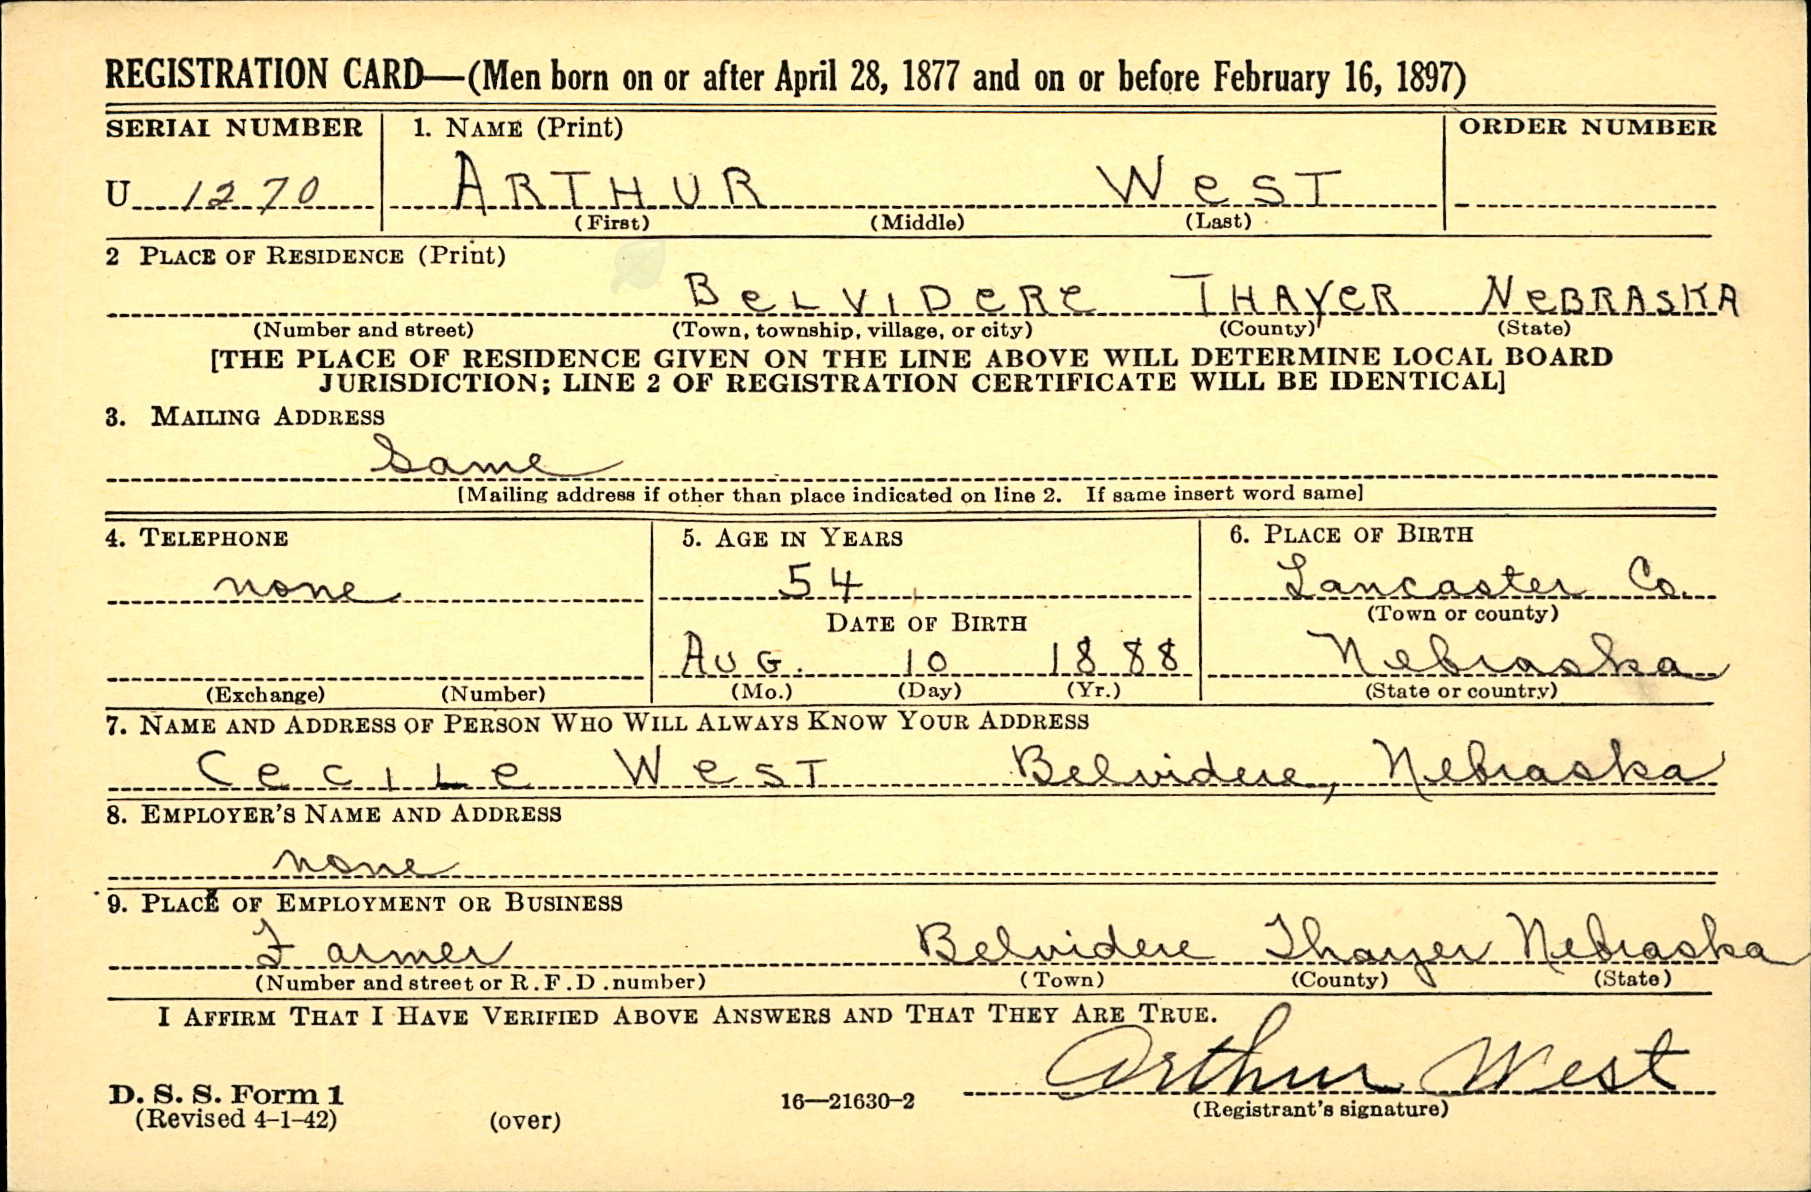 REGISTRATION CARD—(Men born on or after April 28, 1877 and on or before February 16, 1897)
SERIAL NUMBER 1. NAME (Print) ORDER NUMBER
U 1270 ARTHUR WeST
(First) (Middle) (Last)
2 PLACE OF RESIDENCE (Print)
BeLVIDeRe THAYeR NeBRASKA
(Number and street) (Town, township, village, or city) (County) (State)
[THE PLACE OF RESIDENCE GIVEN ON THE LINE ABOVE WILL DETERMINE LOCAL BOARD
JURISDICTION; LINE 2 OF REGISTRATION CERTIFICATE WILL BE IDENTICAL]
3. MAILING ADDRESS
Same
[Mailing address if other than place indicated on line 2. If same insert word same]
4. TELEPHONE 5. AGE IN YEARS 6. PLACE OF BIRTH
none 54 Lancaster Co.
DATE OF BIRTH (Town or county)
AUG. 10 1888 Nebraska
(Exchange) (Number) (Mo.) (Day) (Yr.) (State or country)
7. NAME AND ADDRESS OF PERSON WHO WILL ALWAYS KNOW YOUR ADDRESS
CeCILe WeST Belvidere, Nebraska
8. EMPLOYER'S NAME AND ADDRESS
none
9. PLACE OF EMPLOYMENT OR BUSINESS
Farmer Belvidere Thayer Nebraska
(Number and street or R.F.D. number) (Town) (County) (State)
I AFFIRM THAT I HAVE VERIFIED ABOVE ANSWERS AND THAT THEY ARE TRUE.
Arthur West
D. S. S. Form 1
(Revised 4-1-42) (over) 16—21630-2 (Registrant's signature)